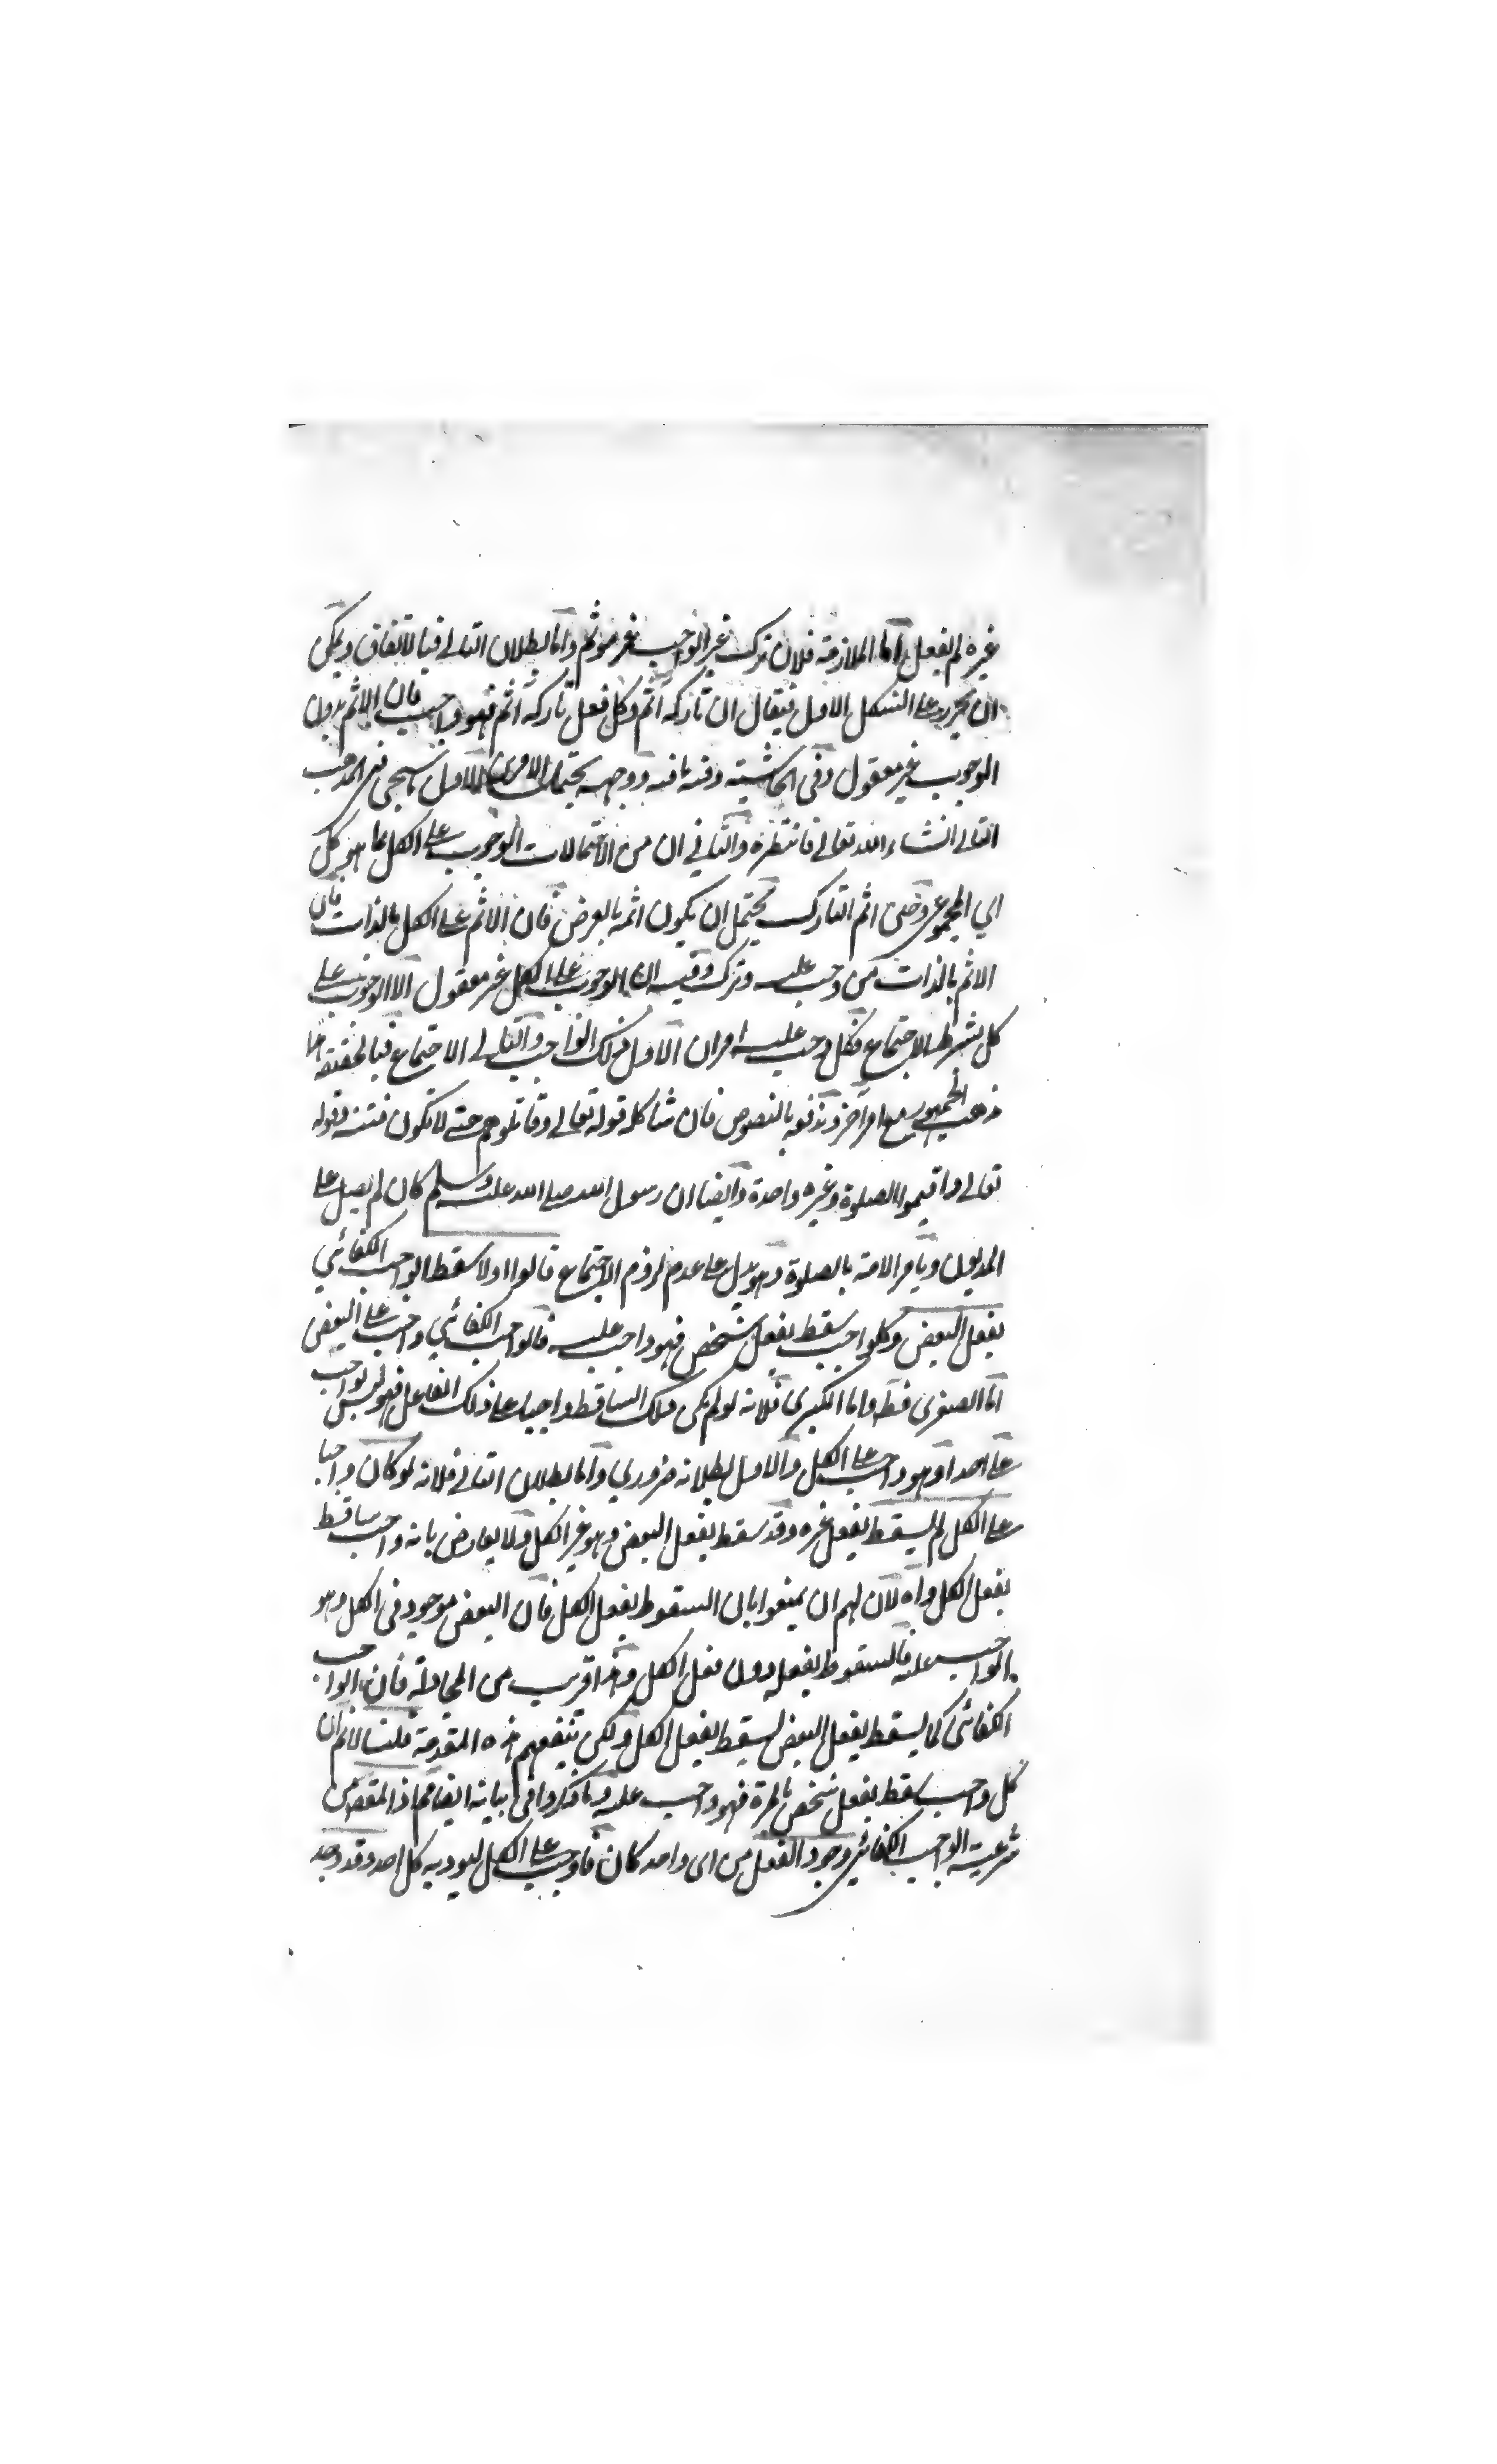 غيره لم يفعل اما الملازمة فلان ترك غير الواجب غير مؤثم واما بطلان التالي فبالاتفاق ويمكن
ان يحرر على الشكل الاول فيقال ان تاركه آثم وكل فعل تاركه آثم فهو واجب فان الاثم بدون
الوجوب غير معقول وفي الحاشية وفيه ما فيه ووجهه يحتمل الامرين الاول ما سيجئ في المذهب
التالي انشاء الله تعالى فانتظره والثاني ان من الاحتمالات الوجوب على الكل بما هو كل
اي المجموعي وحين اثم التارك يحتمل ان يكون اثمه بالعرض فان الاثم على الكل بالذات فان
الاثم بالذات من وجب عليه وترك وفيه ان الوجوب على الكل غير معقول الا الوجوب على
كل بشرط الاجتماع فكل وجب عليه امران الاول ذلك الواجب والثاني الاجتماع فبالحقيقة هذا
مذهب الجمهور مع امر آخر وندفعه بالنصوص فان شاكلة قوله تعالى وقاتلوهم حتى لا تكون فتنة وقوله
تعالى واقيموا الصلوة وغيره واحدة وايضا ان رسول الله صلى الله عليه وسلم كان لم يصل على
المديون ويأمر الامة بالصلوة وهو يدل على عدم لزوم الاجتماع قالوا اولا سقط الواجب الكفائي
بفعل البعض وكل واجب سقط بفعل شخص فهو واجب عليه فالواجب الكفائي واجب على البعض
اما الصغرى فظ واما الكبرى فلانه لو لم يكن ذلك الساقط واجبا على ذلك الفاعل فهو ليس بواجب
على احد او هو واجب على الكل والاول بطلانه ضروري واما بطلان الثاني فلانه لو كان واجبا
على الكل لم يسقط بفعل غيره وقد سقط بفعل البعض وهو غير الكل ولا يعارض بانه واجب ساقط
بفعل الكل واه لان لهم ان يمنعوا بان السقوط بفعل الكل فان البعض موجود في الكل وهو
الواجب عليه فالسقوط بفعله دون فعل الكل وهذا قريب من المجادلة فان الواجب
الكفائي كما يسقط بفعل البعض يسقط بفعل الكل ولكن تنفعهم هذه المقدمة قلنا لا نم ان
كل واجب سقط بفعل شخص بالمرة فهو واجب عليه وما ذكروا في بيانه ايضا مم اذ المقص من
شرعية الواجب الكفائي وجود الفعل من اي واحد كان فاوجب على الكل ليوديه كل احد وقد وجد